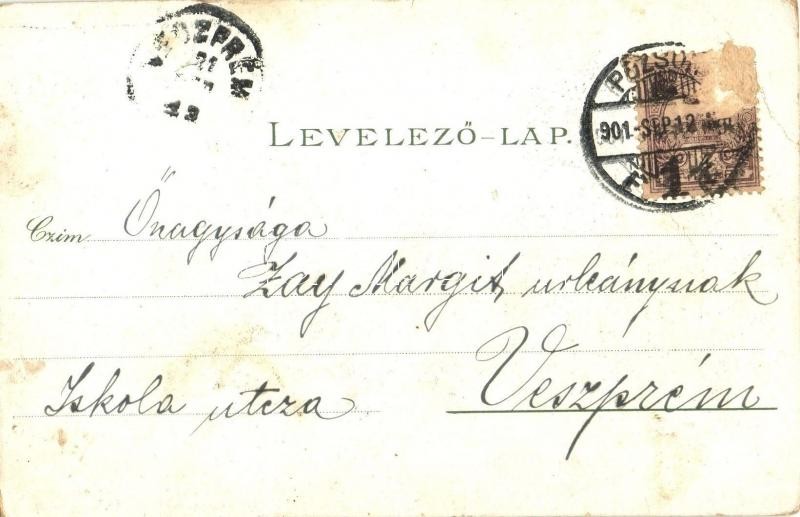 VESZPRÉM
LEVELEZŐ-LAP.
POZSO
901-SEP.12
Czim Őnagysága
Zay Margit urleánynak
Iskola utcza Veszprém